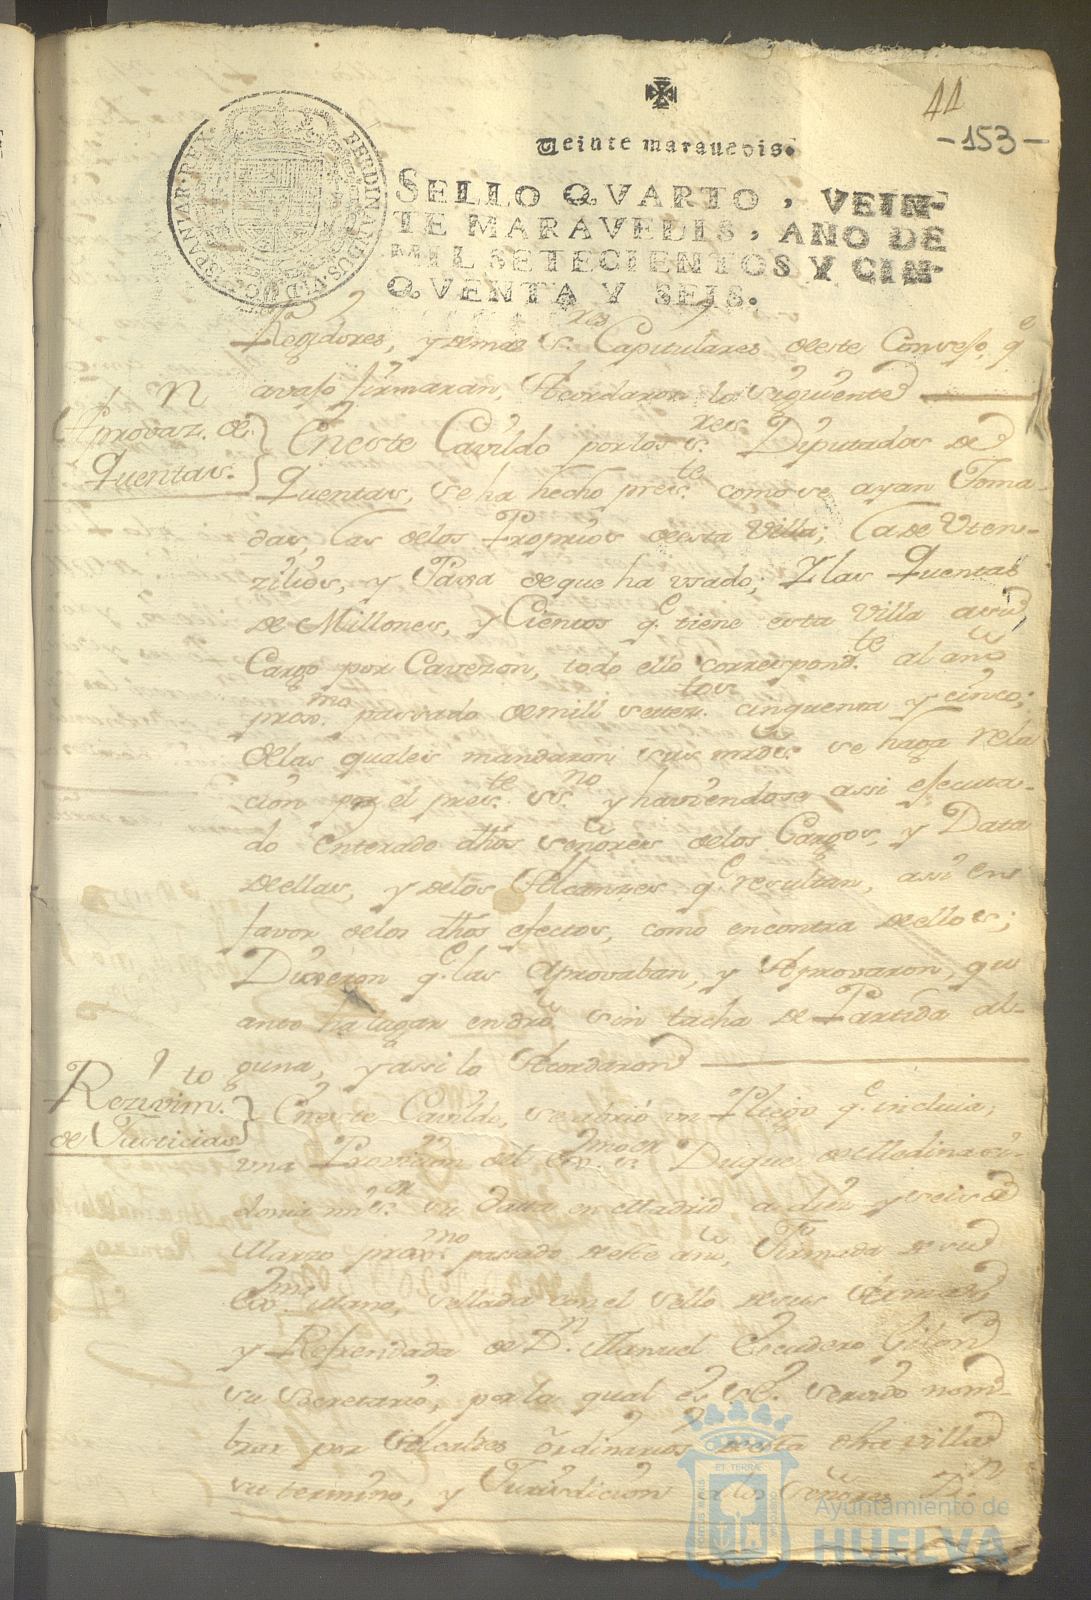 44
-153-
Veinte maravedis.
SELLO QVARTO, VEIN-
TE MARAVEDIS, AÑO DE
MIL SETECIENTOS Y CIN-
QVENTA Y SEIS.
FERDINANDUS VI D. G. HISPANIAR. REX
Regidores, y demas s.res Capitulares deeste Consejo, q.e
avajo firmaran, Acordaron lo siguiente
Aprovaz.n de
Quentas.
Eneste Cavildo porlos s.res Diputados de
Quentas, se ha hecho pres.te como se ayan Toma-
das, las delos Proprios deesta Villa; la de Uten-
zilios, y Paxa deque ha usado; Y las Quentas
de Millones, y Cientos q.e tiene esta Villa asu
Cargo por Cavezon, todo ello correspond.te al año
prox.mo passado demill settez.tos cinquenta y cinco;
delas quales mandaron sus mrds. se haga rela
cion por el pres.te ss.no y haviendose assi efecuta-
do enterado dhos señores delos Cargos, y Data
deellas, y delos Alcanzes q.e resultan, asi en
favor delos dhos efectos, como encontra deellos;
Dixeron q.e las Aprovaban, y Aprovaron, qu
anto ha lugar endro sin tacha de Partida al-
guna, yassi lo Acordaron
Rezivim.to
de Justicias
Eneste Cavildo, seabrio un Pliego q.e incluia,
una Provision del Ex.mo s.or Duque deMedinasi-
donia mi s.or su data en Madrid a diez y seis de
Marzo prox.mo passado deeste año, Firmada de su
Ex.ma Mano, sellada con el sello desus Armas
y Refrendada de D.n Manuel Escudero Gilon
su Secretario, por la qual es servido nom-
brar por Alcaldes ordinarios deesta dha villa
su termino, y Jurisdicion alos Señores D.n
ET TERRAE
Ayuntamiento de
HUELVA